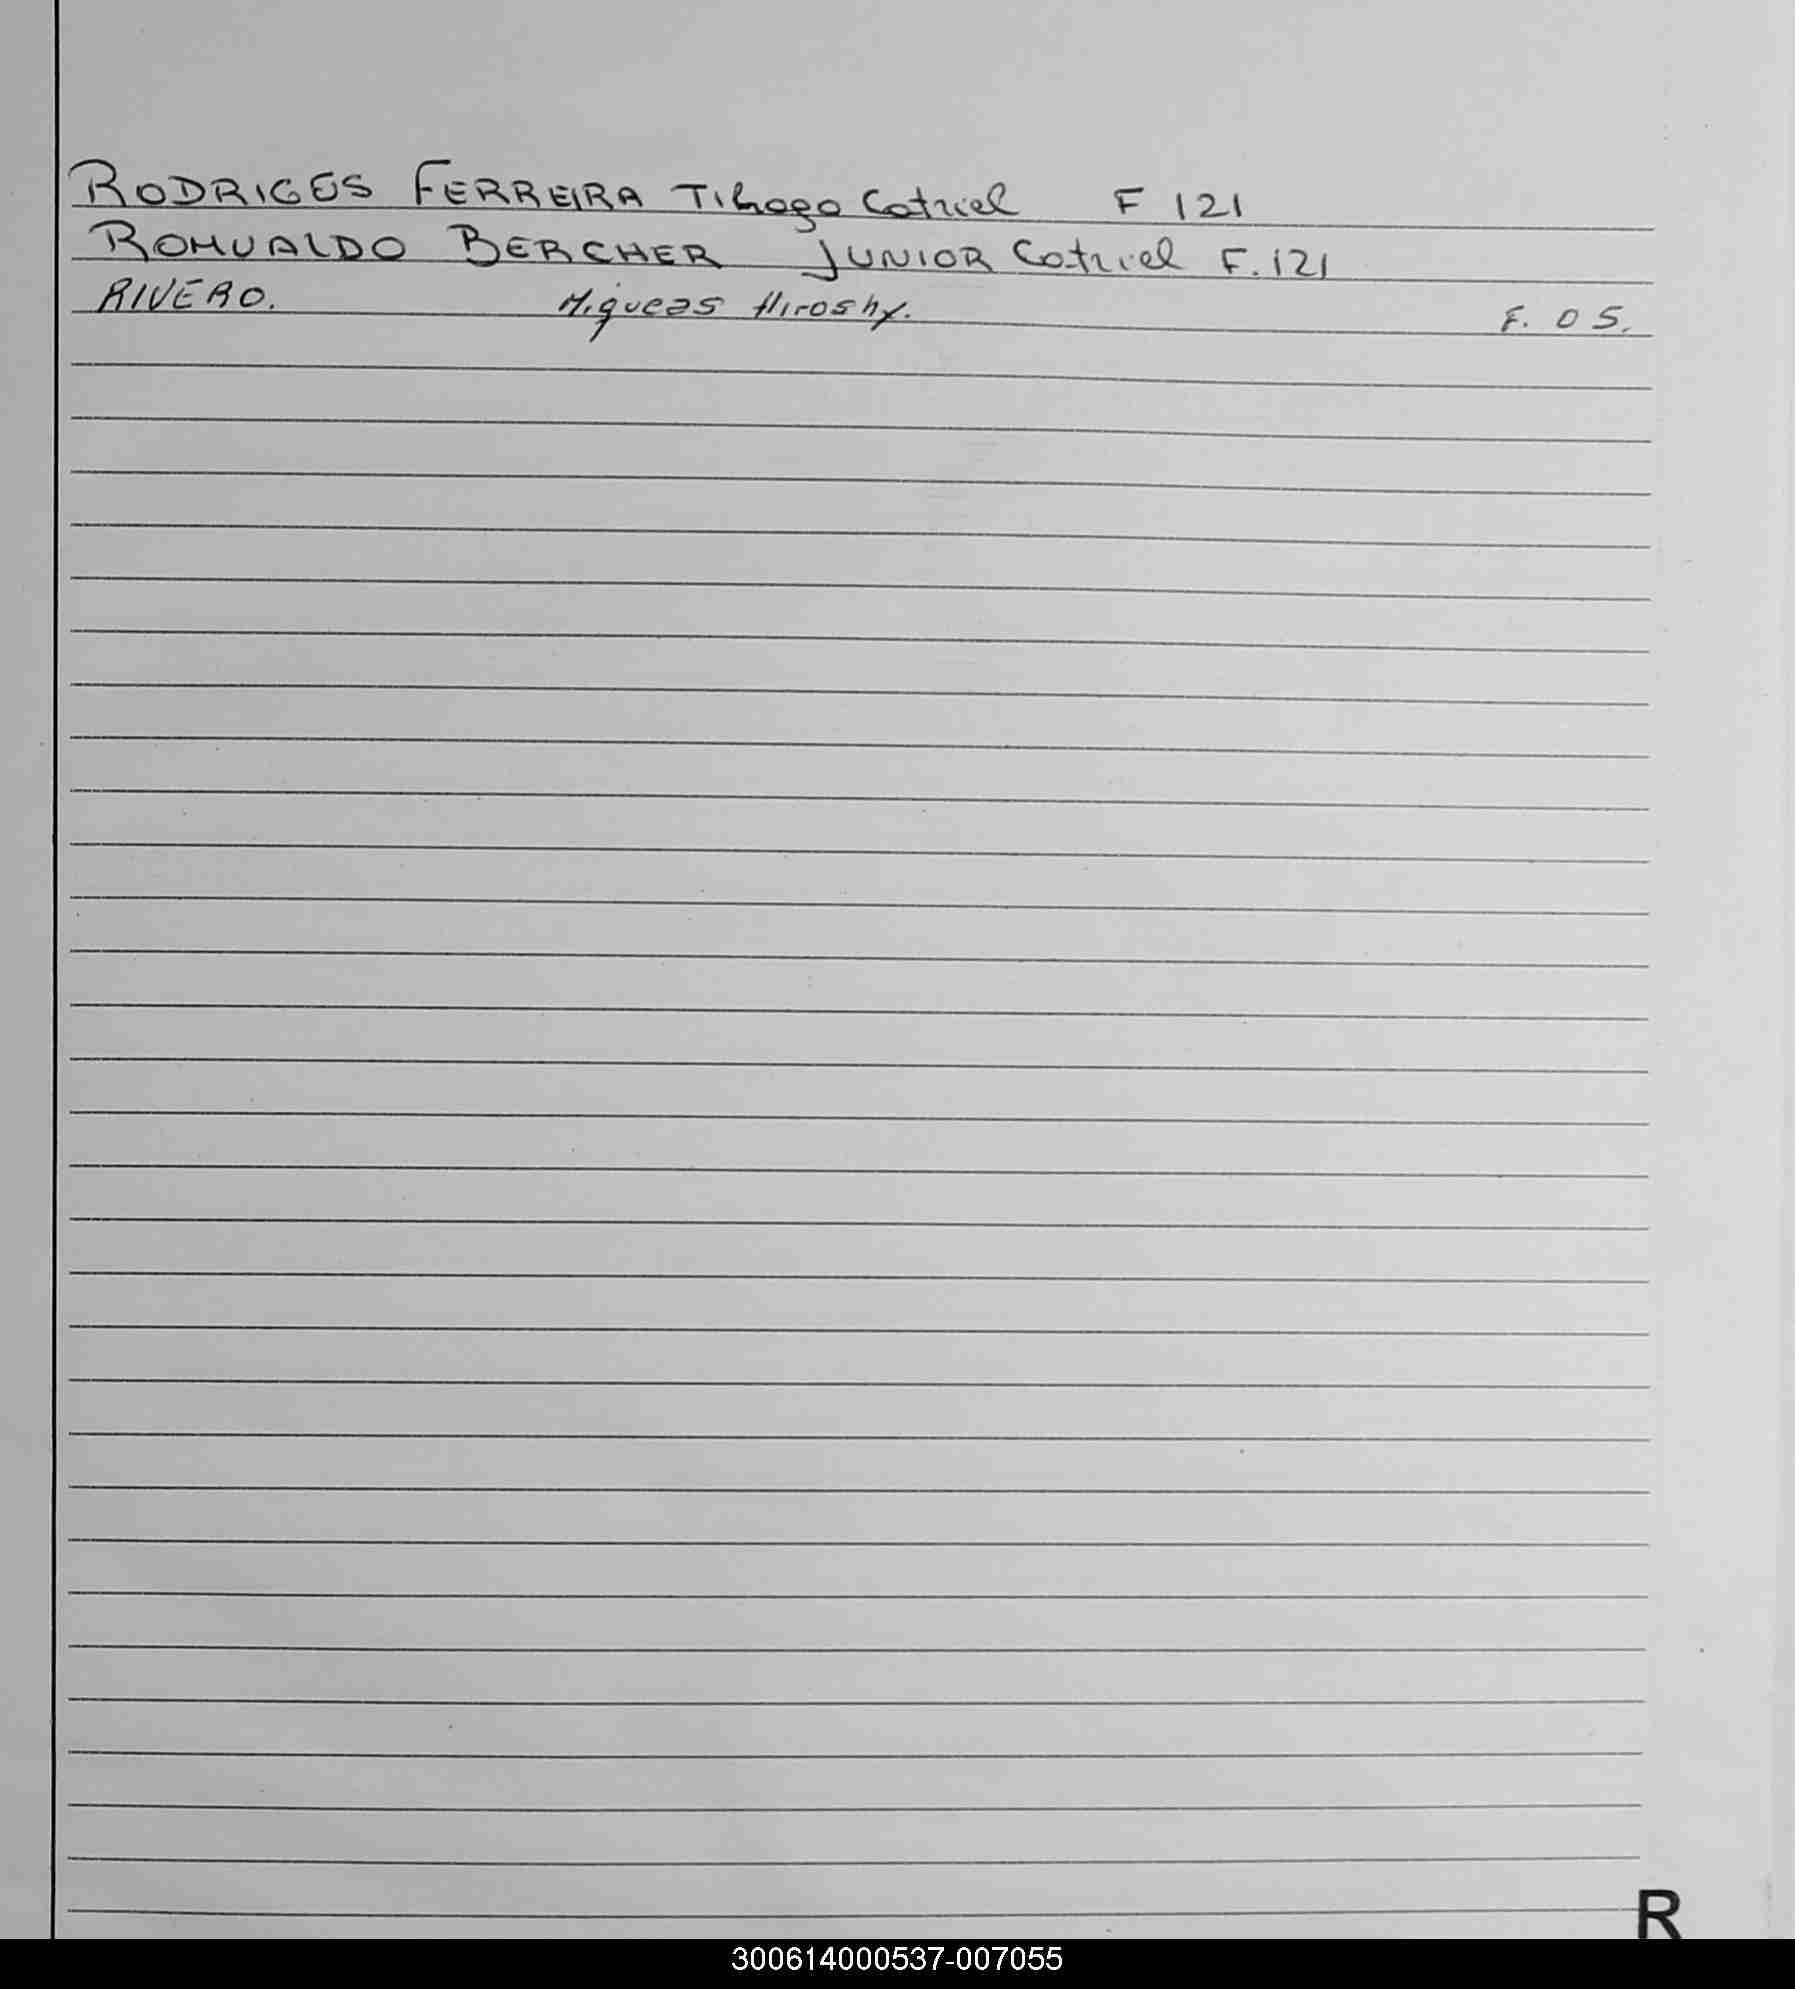 RODRIGES FERREIRA Tihago Catriel F 121
ROMUALDO BERCHER JUNIOR Catriel F. 121
RIVERO. Miqueas Hiroshy. F. 05.
R
300614000537-007055